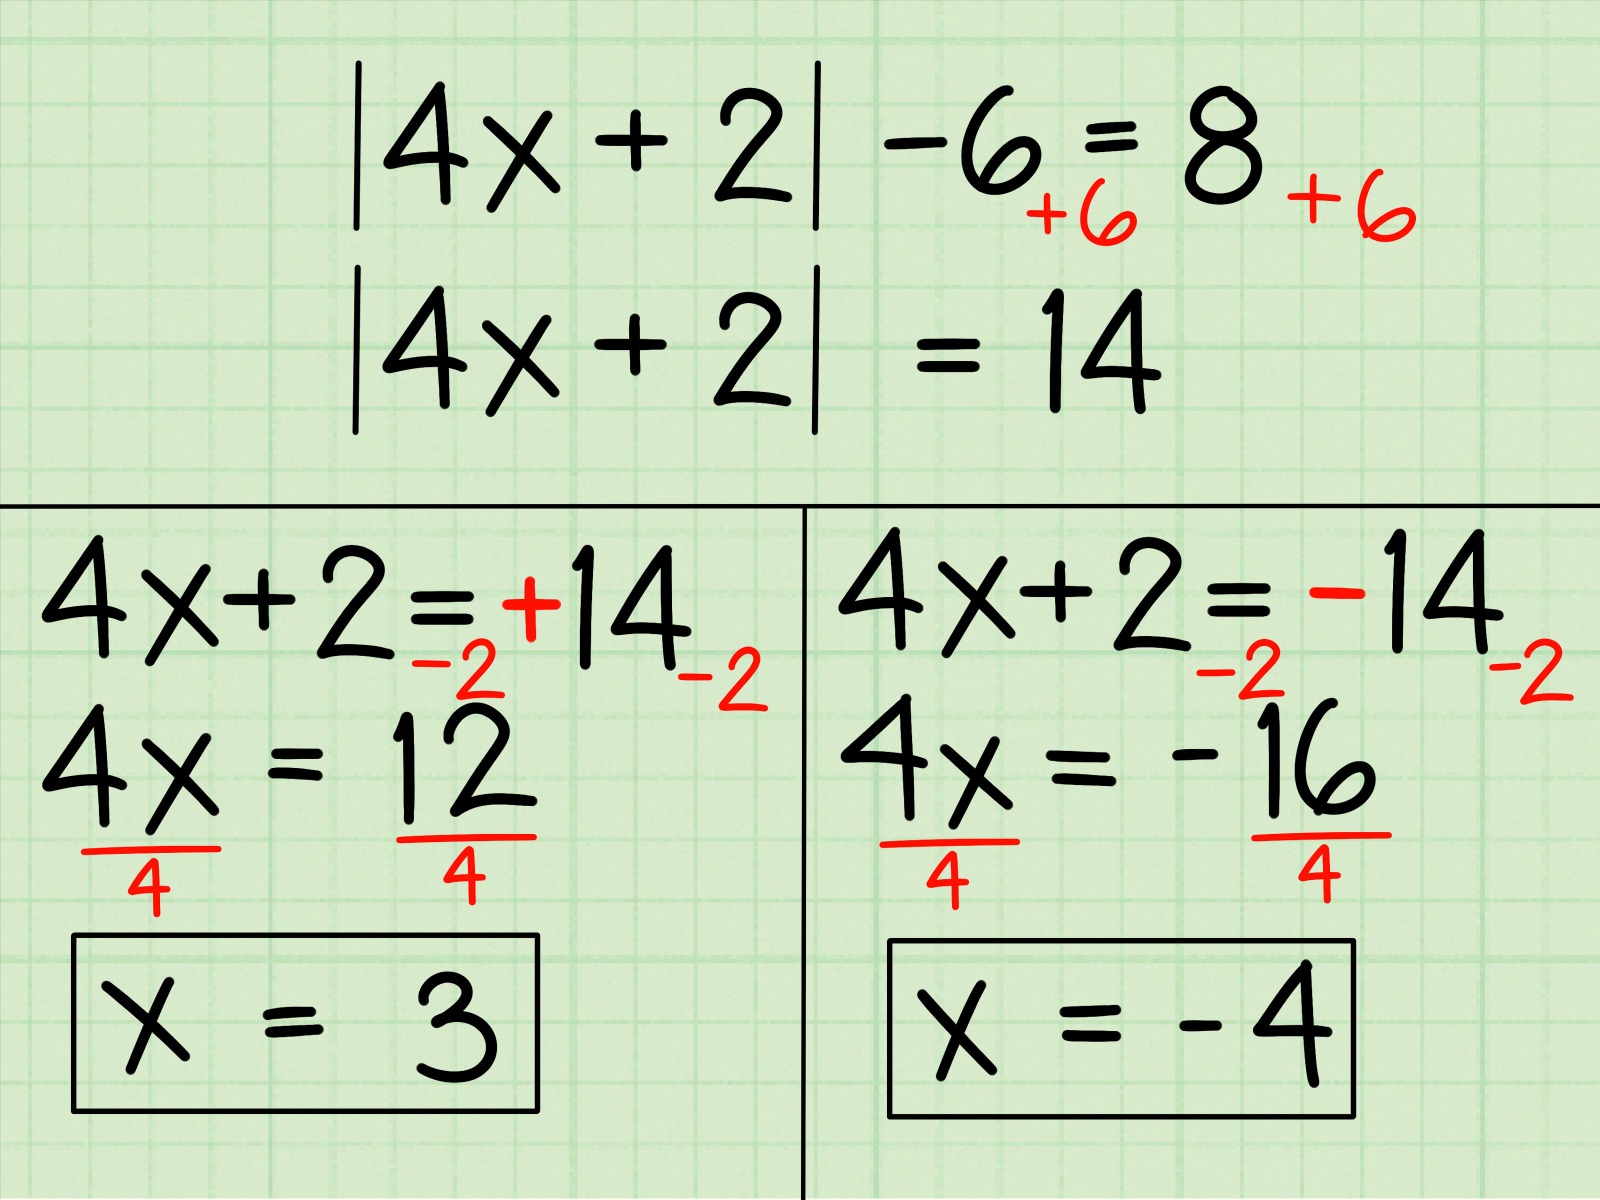 |4x + 2| - 6 = 8
+6 +6
|4x + 2| = 14
4x + 2 = +14
-2 -2
4x = 12
4 4
x = 3
4x + 2 = -14
-2 -2
4x = -16
4 4
x = -4